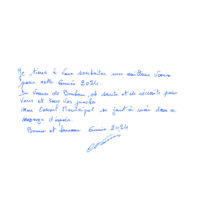 Je tiens à vous souhaiter mes meilleurs vœux
pour cette année 2024.
Des vœux de Bonheur, de santé et de réussite pour
vous et tous vos proches.
Mon Conseil Municipal se joint à moi dans ce
message d'espoir.
Bonne et heureuse année 2024